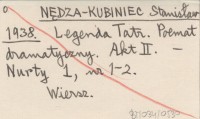 NĘDZA-KUBINIEC Stanisław
1938. Legenda Tatr. Poemat
dramatyczny. Akt II. –
Nurty 1, nr 1-2.
Wiersz.